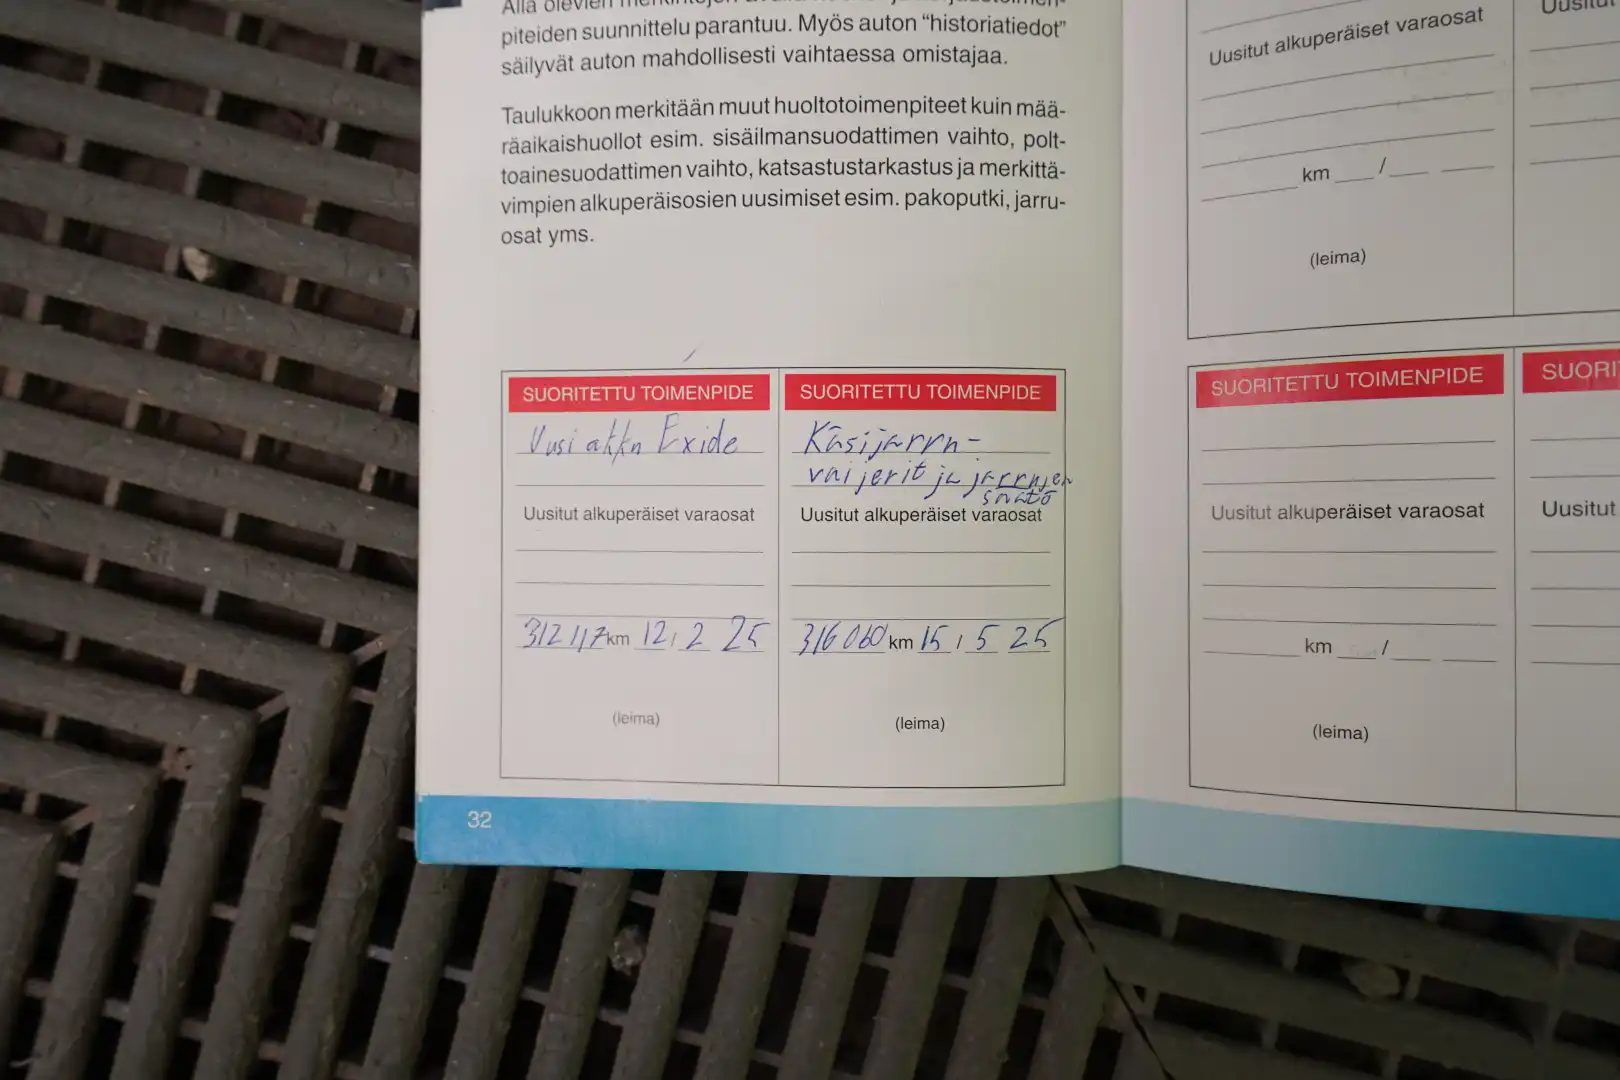 piteiden suunnittelu parantuu. Myös auton “historiatiedot”
säilyvät auton mahdollisesti vaihtaessa omistajaa.
Taulukkoon merkitään muut huoltotoimenpiteet kuin mää-
räaikaishuollot esim. sisäilmansuodattimen vaihto, polt-
toainesuodattimen vaihto, katsastustarkastus ja merkittä-
vimpien alkuperäisosien uusimiset esim. pakoputki, jarru-
osat yms.
SUORITETTU TOIMENPIDE
Uusi akku Exide
Uusitut alkuperäiset varaosat
312 117 km 12 / 2 25
(leima)
SUORITETTU TOIMENPIDE
Käsijarru-
vaijerit ja jarrujen
säätö
Uusitut alkuperäiset varaosat
316 060 km 15 / 5 25
(leima)
32
Uusitut alkuperäiset varaosat
km /
(leima)
SUORITETTU TOIMENPIDE
Uusitut alkuperäiset varaosat
km /
(leima)
Uusitut